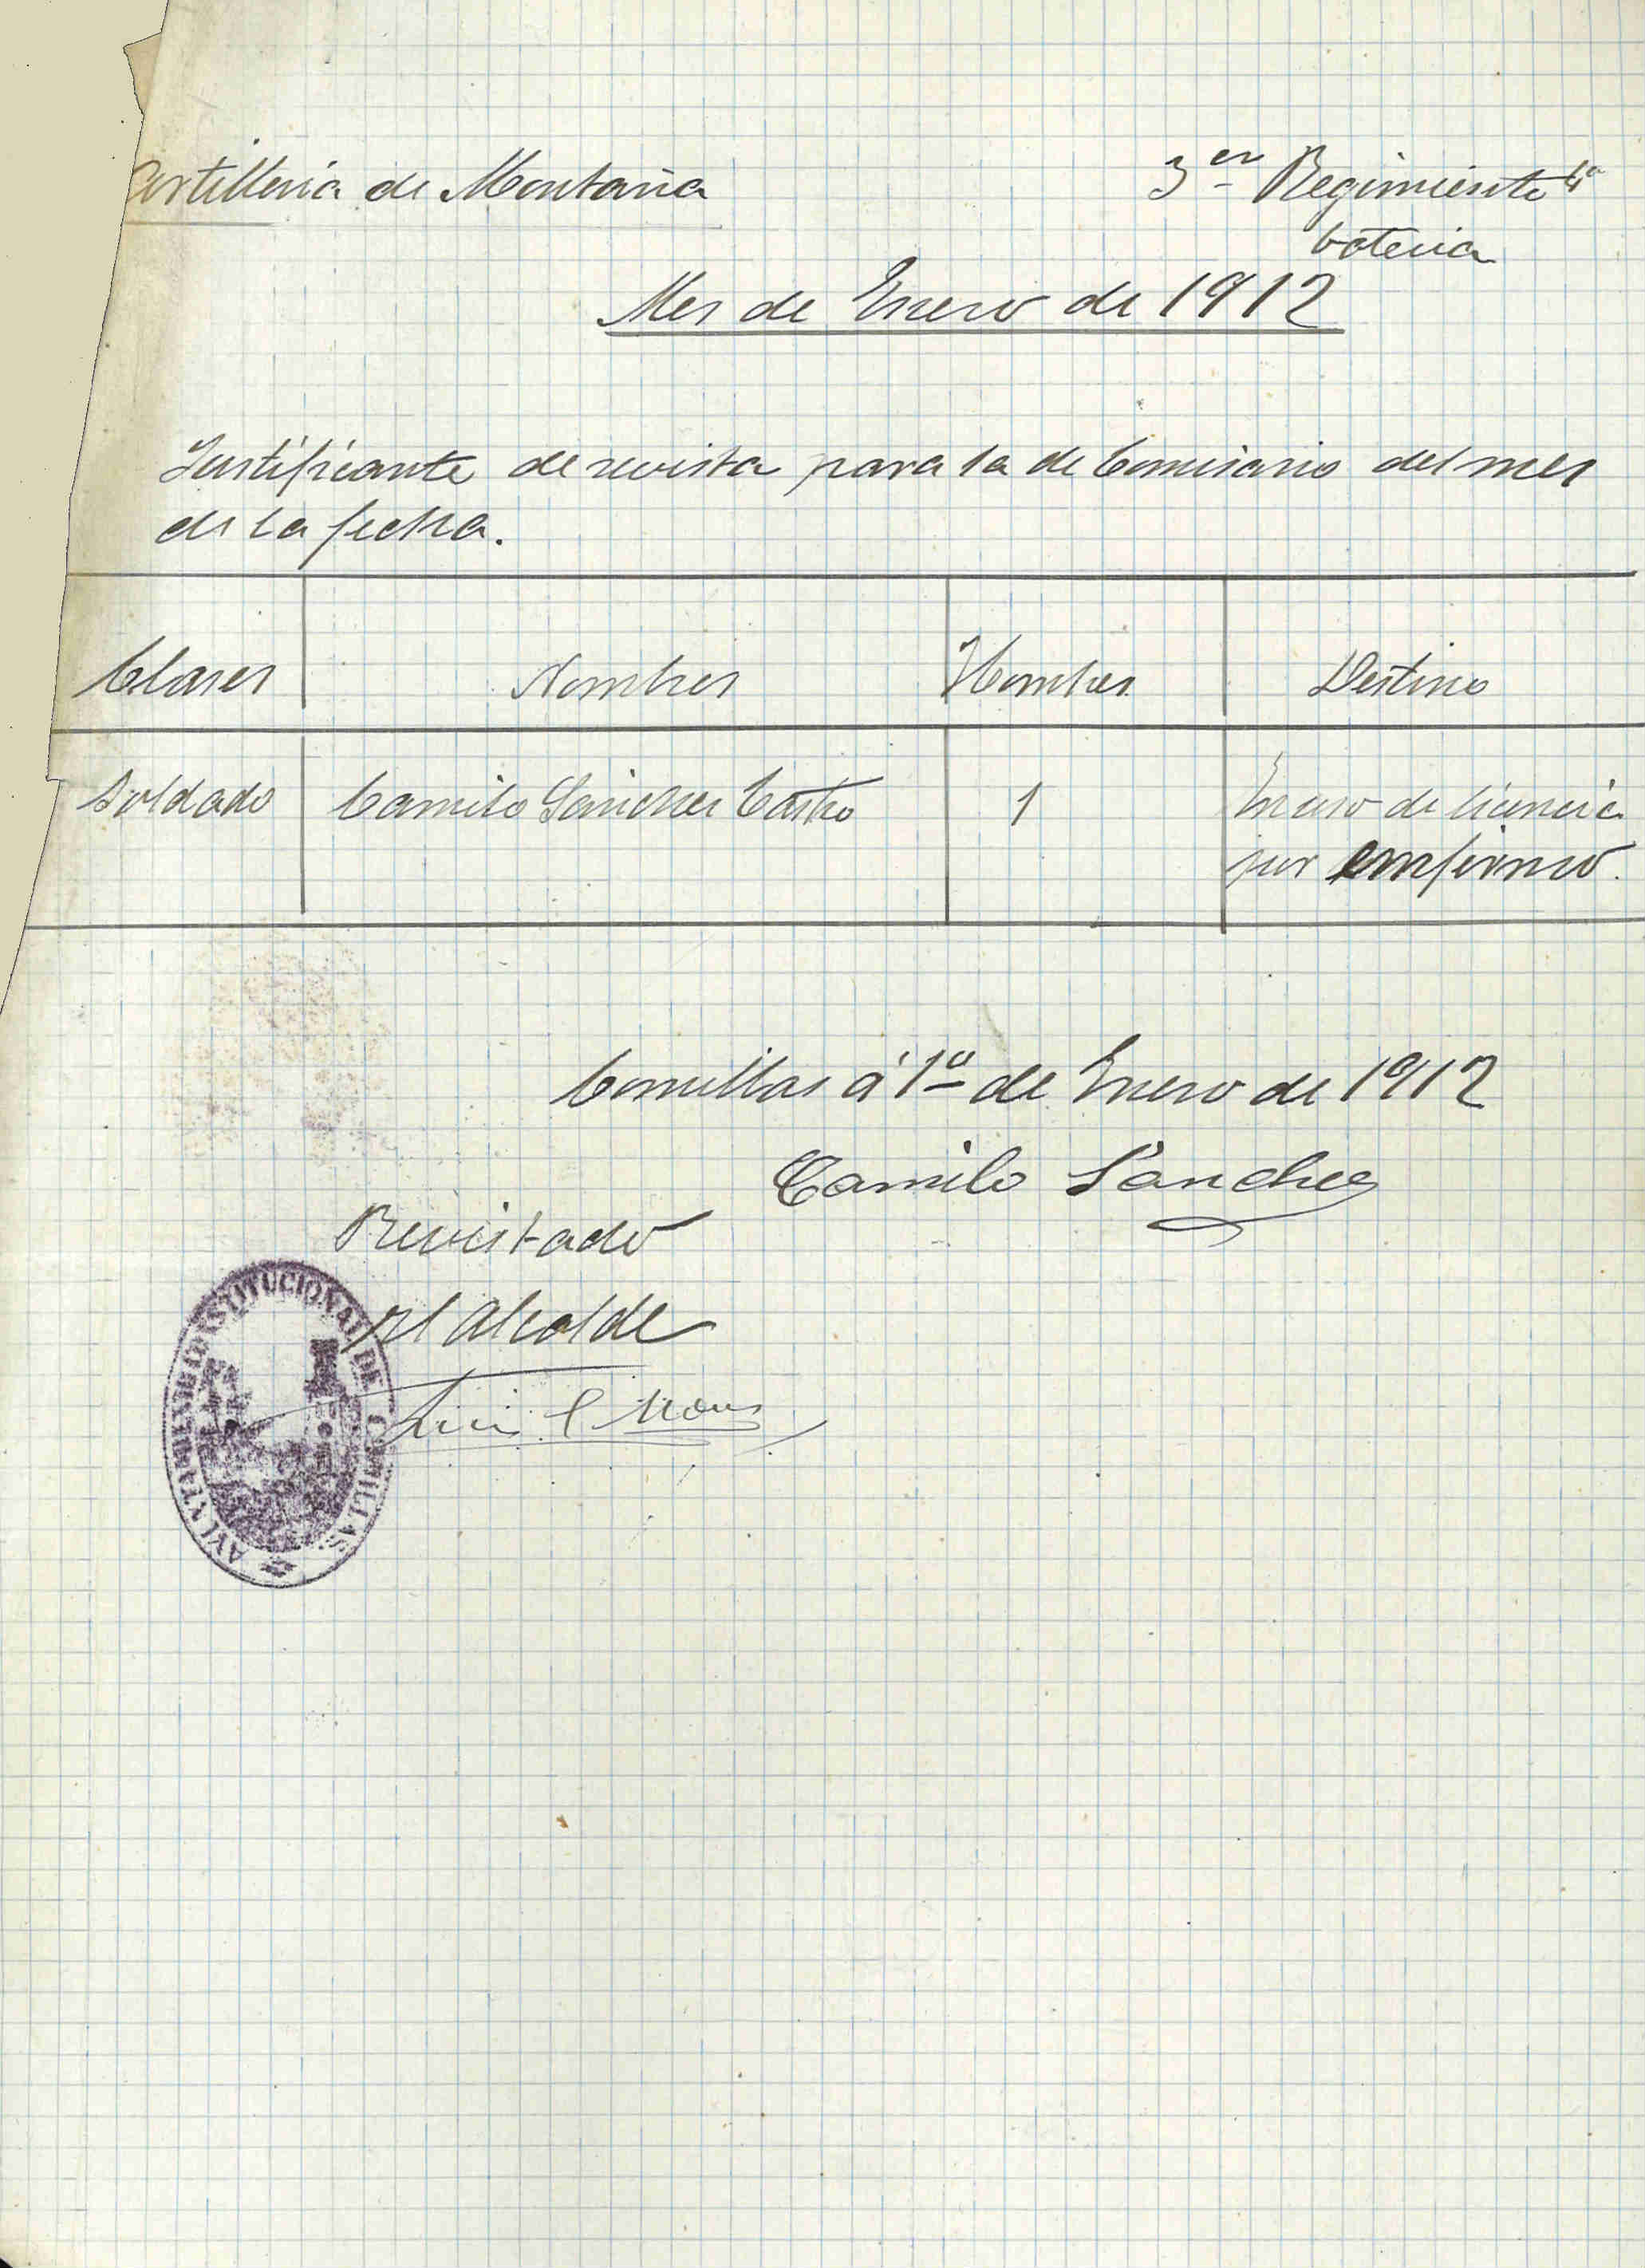 Artilleria de Montaña
3er Regimiento 4ª
bateria
Mes de Enero de 1912
Justificante de revista para la de Comisario del mes
de la fecha.
Clases Nombres Hombres Destino
Soldado Camilo Sánches Castro 1 En uso de licencia
por emfermo.
Comillas á 1º de Enero de 1912
Camilo Sanchez
Revistado
El Alcalde
AYUNTAMIENTO CONSTITUCIONAL DE COMILLAS